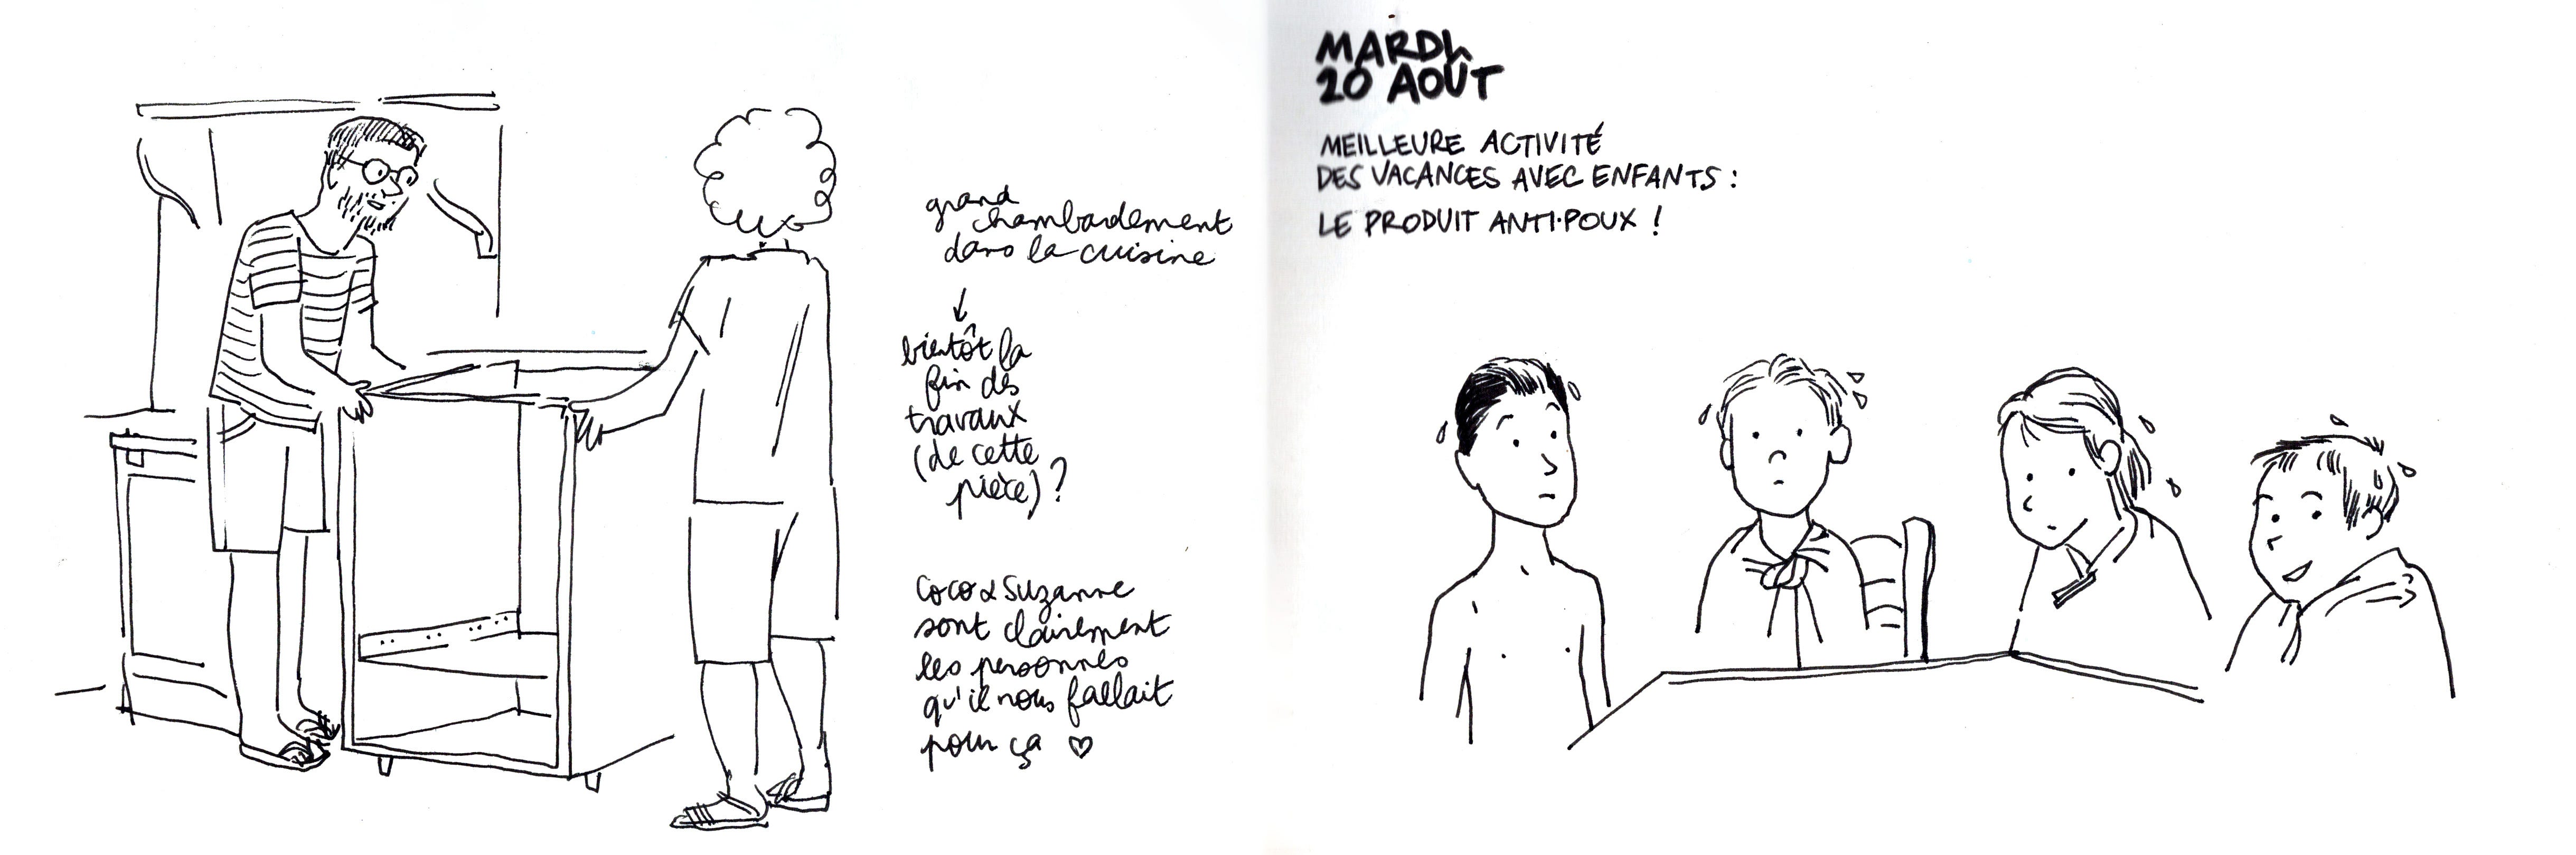 grand
chambardement
dans la cuisine
↓
bientôt la
fin des
travaux
(de cette
pièce) ?
Coco & Suzanne
sont clairement
les personnes
qu'il nous fallait
pour ça ♡
MARDI
20 AOÛT
MEILLEURE ACTIVITÉ
DES VACANCES AVEC ENFANTS :
LE PRODUIT ANTI-POUX !